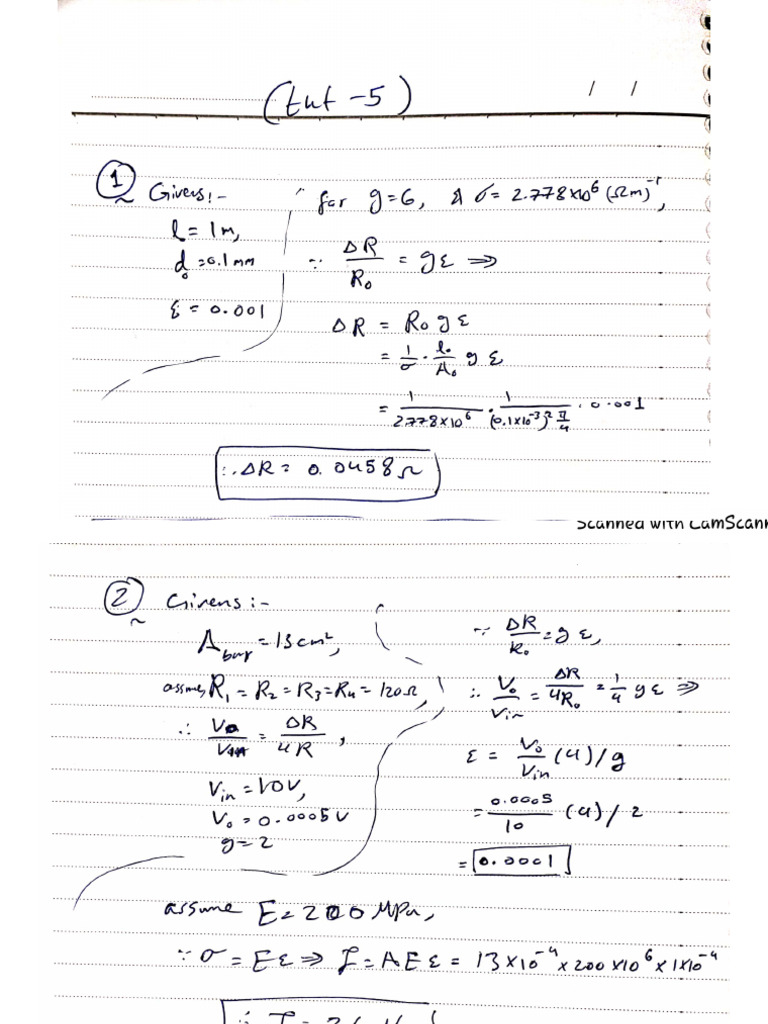 (tut -5)
/ /
① Givens:-
l = 1m,
d₀ = 0.1mm
ε = 0.001
for g=6, & σ = 2.778×10⁶ (Ωm)⁻¹,
∵ ΔR/R₀ = gε ⇒
ΔR = R₀ g ε
= 1/σ · l₀/A₀ g ε
= 1/2.778×10⁶ · 1/(0.1×10⁻³)² π/4 · 0.001
∴ ΔR = 0.0458Ω
Scanned with CamScann
② Givens:-
A bar = 13cm²,
assume, R₁ = R₂ = R₃ = R₄ = 120Ω,
∴ V₀/Vin = ΔR/4R,
Vin = 10V,
V₀ = 0.0005V
g = 2
∵ ΔR/R₀ = gε,
∴ V₀/Vin = ΔR/4R₀ = 1/4 gε ⇒
ε = V₀/Vin (4)/g
= 0.0005/10 (4)/2
= 0.0001
assume E = 200 MPa,
∵ σ = Eε ⇒ F = AEε = 13×10⁻⁴ × 200×10⁶ × 1×10⁻⁴